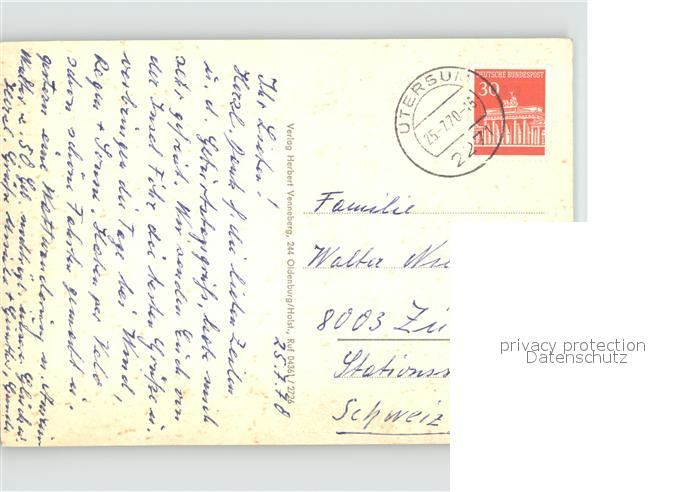 Ihr Lieben!
Herzl. Dank f. die lieben Zeilen
u. d. Geburtstagsgrüße, habe mich
sehr gefreut. Wir senden Euch von
der Insel Föhr die besten Grüße u.
verbringen die Tage bei Wind,
Regen + Sonne. Haben per Velo
schon schöne Fahrten gemacht u.
gestern eine Wattwanderung n. Amrum
25.7.70
Verlag Herbert Venneberg, 244 Oldenburg/Holst., Ruf 04361 / 2726
UTERSUM
25.-7.70-15
2271
DEUTSCHE BUNDESPOST
30
Familie
Walter
8003 Zü
Stations
Schweiz
privacy protection
Datenschutz